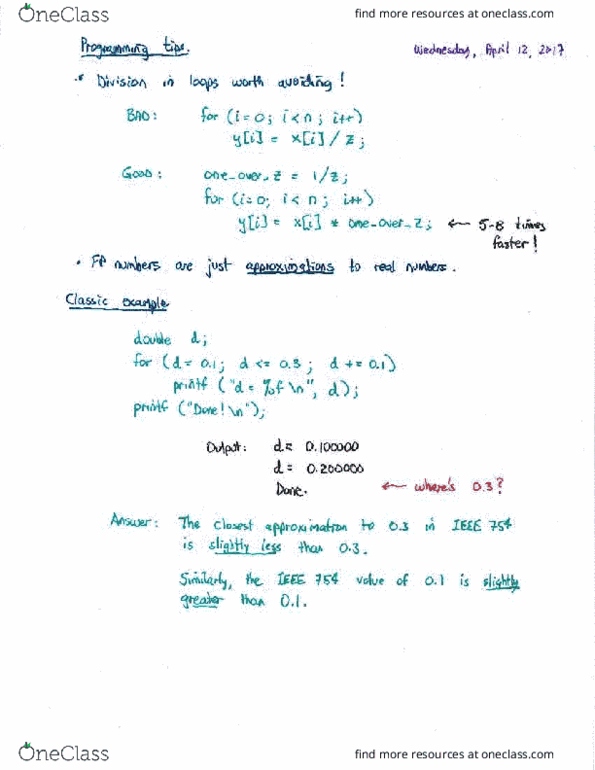 OneClass
find more resources at oneclass.com
Programming tips.
Wednesday, April 12, 2017
• Division in loops worth avoiding!
BAD: for (i=0; i<n; i++)
y[i] = x[i] / z;
GOOD: one_over_z = 1/z;
for (i=0; i<n; i++)
y[i] = x[i] * one_over_z; ← 5-8 times
faster!
• FP numbers are just approximations to real numbers.
Classic example
double d;
for (d = 0.1; d <= 0.3; d += 0.1)
printf ("d = %f \n", d);
printf ("Done! \n");
Output: d = 0.100000
d = 0.200000
Done. ← where's 0.3?
Answer: The closest approximation to 0.3 in IEEE 754
is slightly less than 0.3.
Similarly, the IEEE 754 value of 0.1 is slightly
greater than 0.1.
OneClass
find more resources at oneclass.com